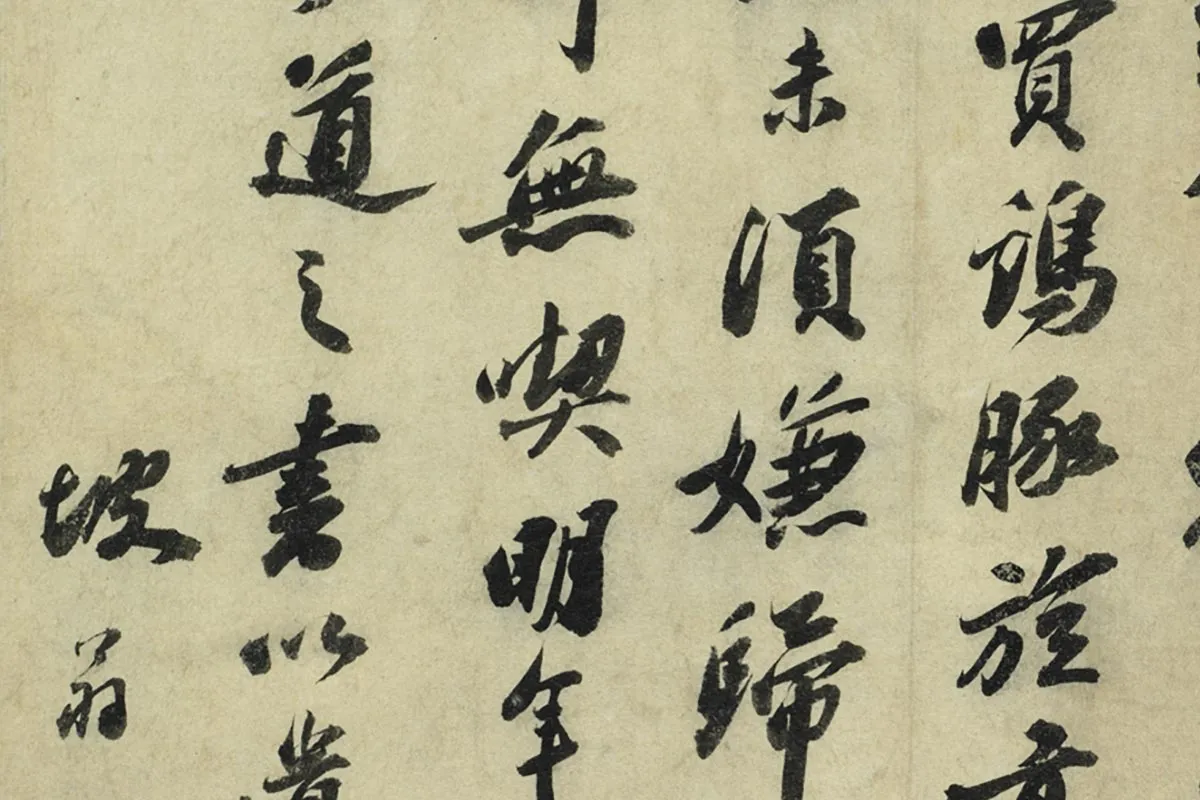 買豚旋
未須嫌歸
無喫明年
道之書以
坡翁